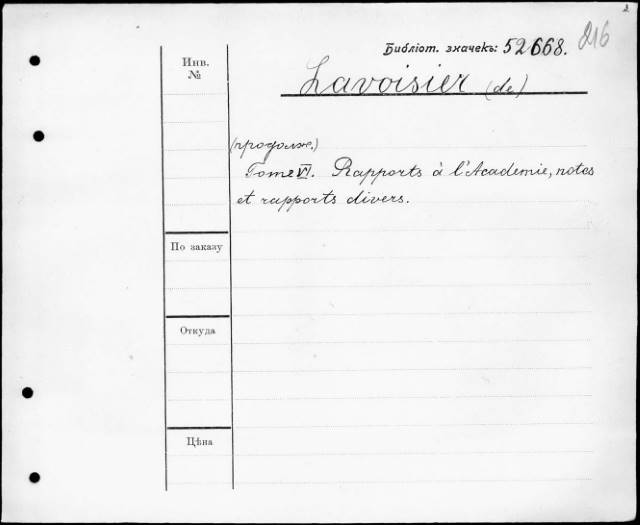 2
Библіот. значекъ: 52668. 216
Инв.
№
Lavoisier (de)
(продолж.)
Tome VI. Rapports à l'Academie, notes
et rapports divers.
По заказу
Откуда
Цѣна